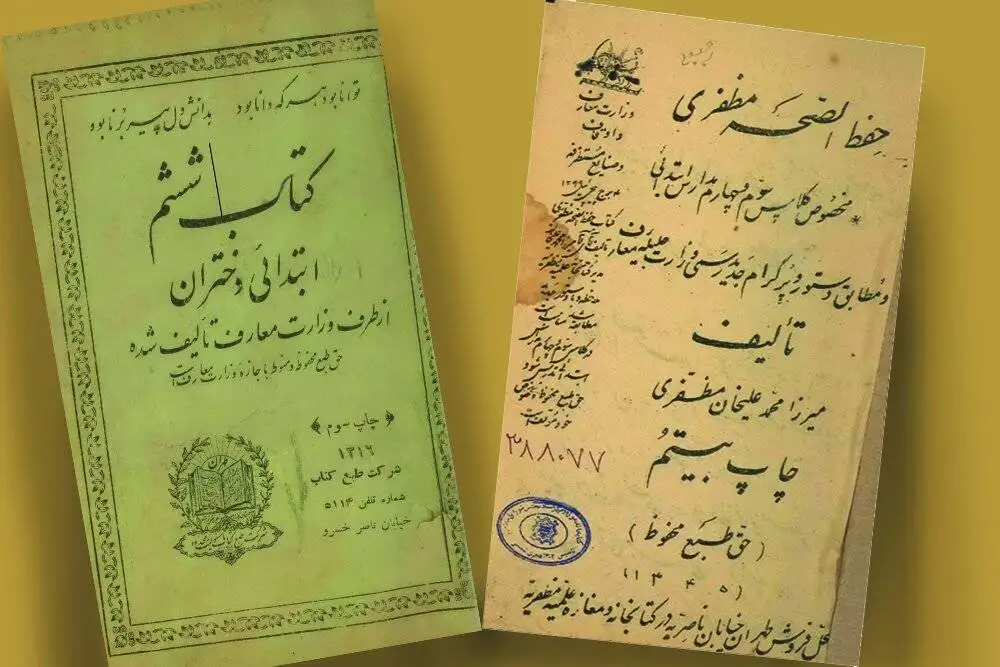 توانا بود هر که دانا بود بدانش دل پیر برنا بود
کتاب ششم
ابتدائی دختران
از طرف وزارت معارف تألیف شده
حق طبع محفوظ و منوط باجازه وزارت معارف است
﴿ چاپ سوم ﴾
۱۳۱۶
شرکت طبع کتاب
شماره تلفن ۵۱۱۴
خیابان ناصر خسرو
حفظ الصحه مظفری
* مخصوص کلاس سوم و چهارم مدارس ابتدائی
و مطابق دستور و پرگرام جدید رسمی وزارت جلیله معارف
تألیف
میرزا محمد علیخان مظفری
چاپ بیستم
( حق طبع محفوظ )
( ۱۳۴۵ )
محل فروش طهران خیابان ناصریه در کتابخانه و مغازه علمیه مظفریه
وزارت معارف
و اوقاف
و صنایع مستظرفه
۳۸۸۰۷۷